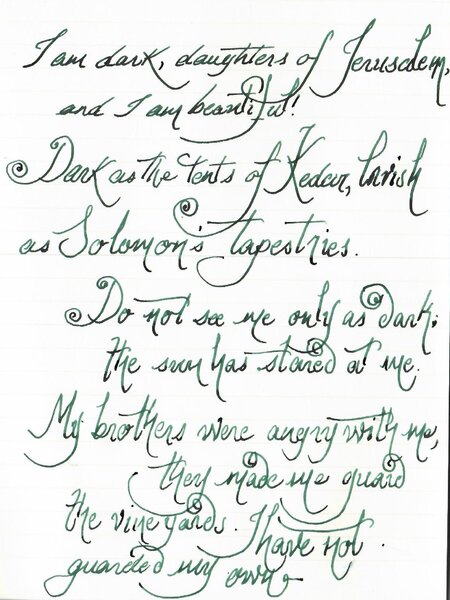 I am dark, daughters of Jerusalem,
and I am beautiful!
Dark as the tents of Kedar, lavish
as Solomon's tapestries.
Do not see me only as dark:
the sun has stared at me.
My brothers were angry with me,
they made me guard
the vineyards. I have not
guarded my own.